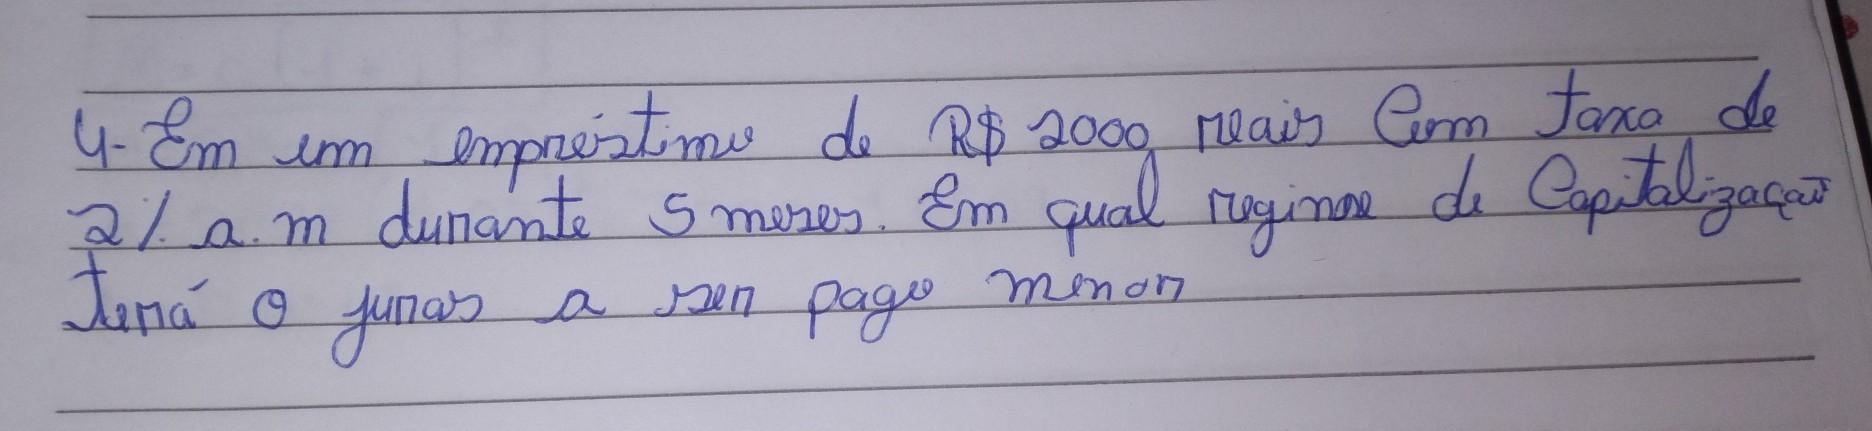 4- Em um empréstimo de R$ 2000 reais Com taxa de
2% a.m durante 5 meses. Em qual regime de Capitalização
terá o juros a ser pago menor